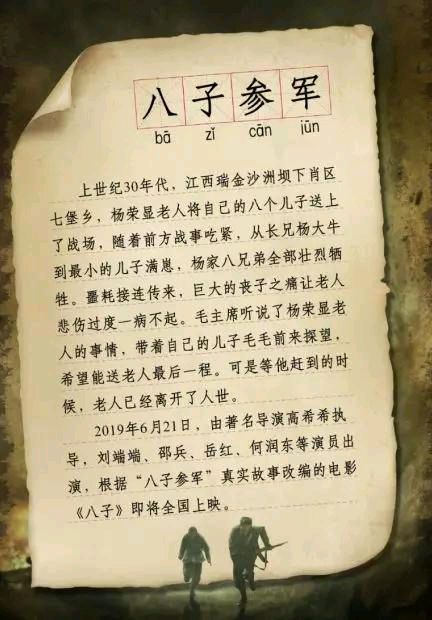 八子参军
bā zǐ cān jūn
上世纪30年代，江西瑞金沙洲坝下肖区
七堡乡，杨荣显老人将自己的八个儿子送上
了战场，随着前方战事吃紧，从长兄杨大牛
到最小的儿子满崽，杨家八兄弟全部壮烈牺
牲。噩耗接连传来，巨大的丧子之痛让老人
悲伤过度一病不起。毛主席听说了杨荣显老
人的事情，带着自己的儿子毛毛前来探望，
希望能送老人最后一程。可是等他赶到的时
候，老人已经离开了人世。
2019年6月21日，由著名导演高希希执
导，刘端端、邵兵、岳红、何润东等演员出
演，根据“八子参军”真实故事改编的电影
《八子》即将全国上映。